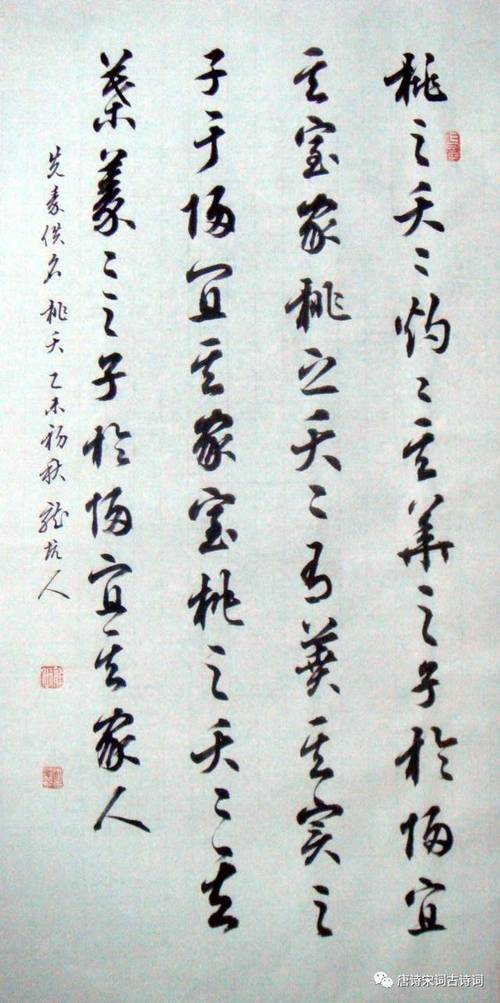 桃之夭〻灼〻其華之子於歸宜
其室家桃之夭〻有蕡其實之
子于歸宜其家室桃之夭〻其
葉蓁〻之子於歸宜其家人
先秦佚名 桃夭 乙未初秋 龍坑人
唐诗宋词古诗词